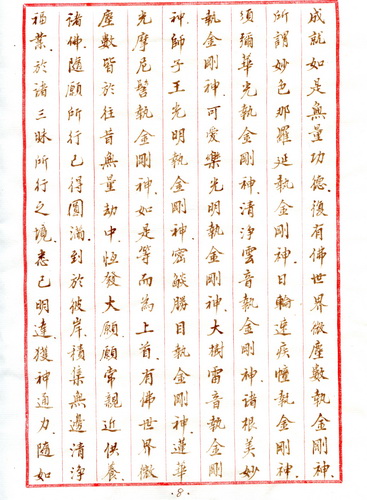 成就如是無量功德.復有佛世界微塵數執金剛神.
所謂妙色那羅延執金剛神.日輪速疾幢執金剛神.
須彌華光執金剛神.清淨雲音執金剛神.諸根美妙
執金剛神.可愛樂光明執金剛神.大樹雷音執金剛
神.師子王光明執金剛神.密燄勝目執金剛神.蓮華
光摩尼髻執金剛神.如是等而為上首.有佛世界微
塵數皆於往昔無量劫中.恆發大願願常親近供養.
諸佛.隨願所行已得圓滿.到於彼岸.積集無邊清淨
福業.於諸三昧所行之境.悉已明達.獲神通力.隨如
·8·